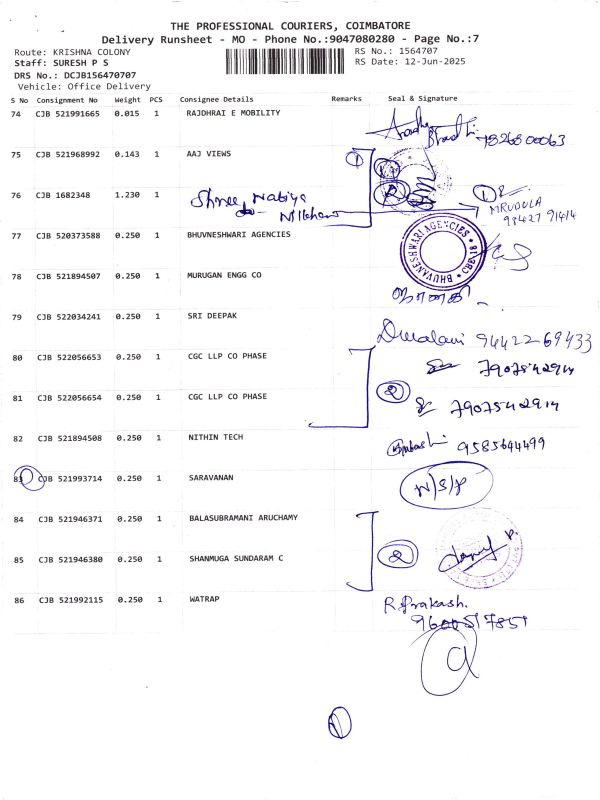 THE PROFESSIONAL COURIERS, COIMBATORE
Delivery Runsheet - MO - Phone No.:9047080280 - Page No.:7
Route: KRISHNA COLONY
RS No.: 1564707
Staff: SURESH P S
RS Date: 12-Jun-2025
DRS No.: DCJB156470707
Vehicle: Office Delivery
S No Consignment No Weight PCS Consignee Details Remarks Seal & Signature
74 CJB 521991665 0.015 1 RAJDHRAI E MOBILITY
75 CJB 521968992 0.143 1 AAJ VIEWS 1
76 CJB 1682348 1.230 1 Shree 2 1
MRUDULA
77 CJB 520373588 0.250 1 BHUVNESHWARI AGENCIES
BHUVANESHWARI AGENCIES
78 CJB 521894507 0.250 1 MURUGAN ENGG CO
ஜானகி
79 CJB 522034241 0.250 1 SRI DEEPAK 94422 69433
80 CJB 522056653 0.250 1 CGC LLP CO PHASE 7907542914
81 CJB 522056654 0.250 1 CGC LLP CO PHASE 2 7907542914
82 CJB 521894508 0.250 1 NITHIN TECH 9585644499
83 CJB 521993714 0.250 1 SARAVANAN N/S/P
84 CJB 521946371 0.250 1 BALASUBRAMANI ARUCHAMY
2
85 CJB 521946380 0.250 1 SHANMUGA SUNDARAM C
86 CJB 521992115 0.250 1 WATRAP R. Prakash.